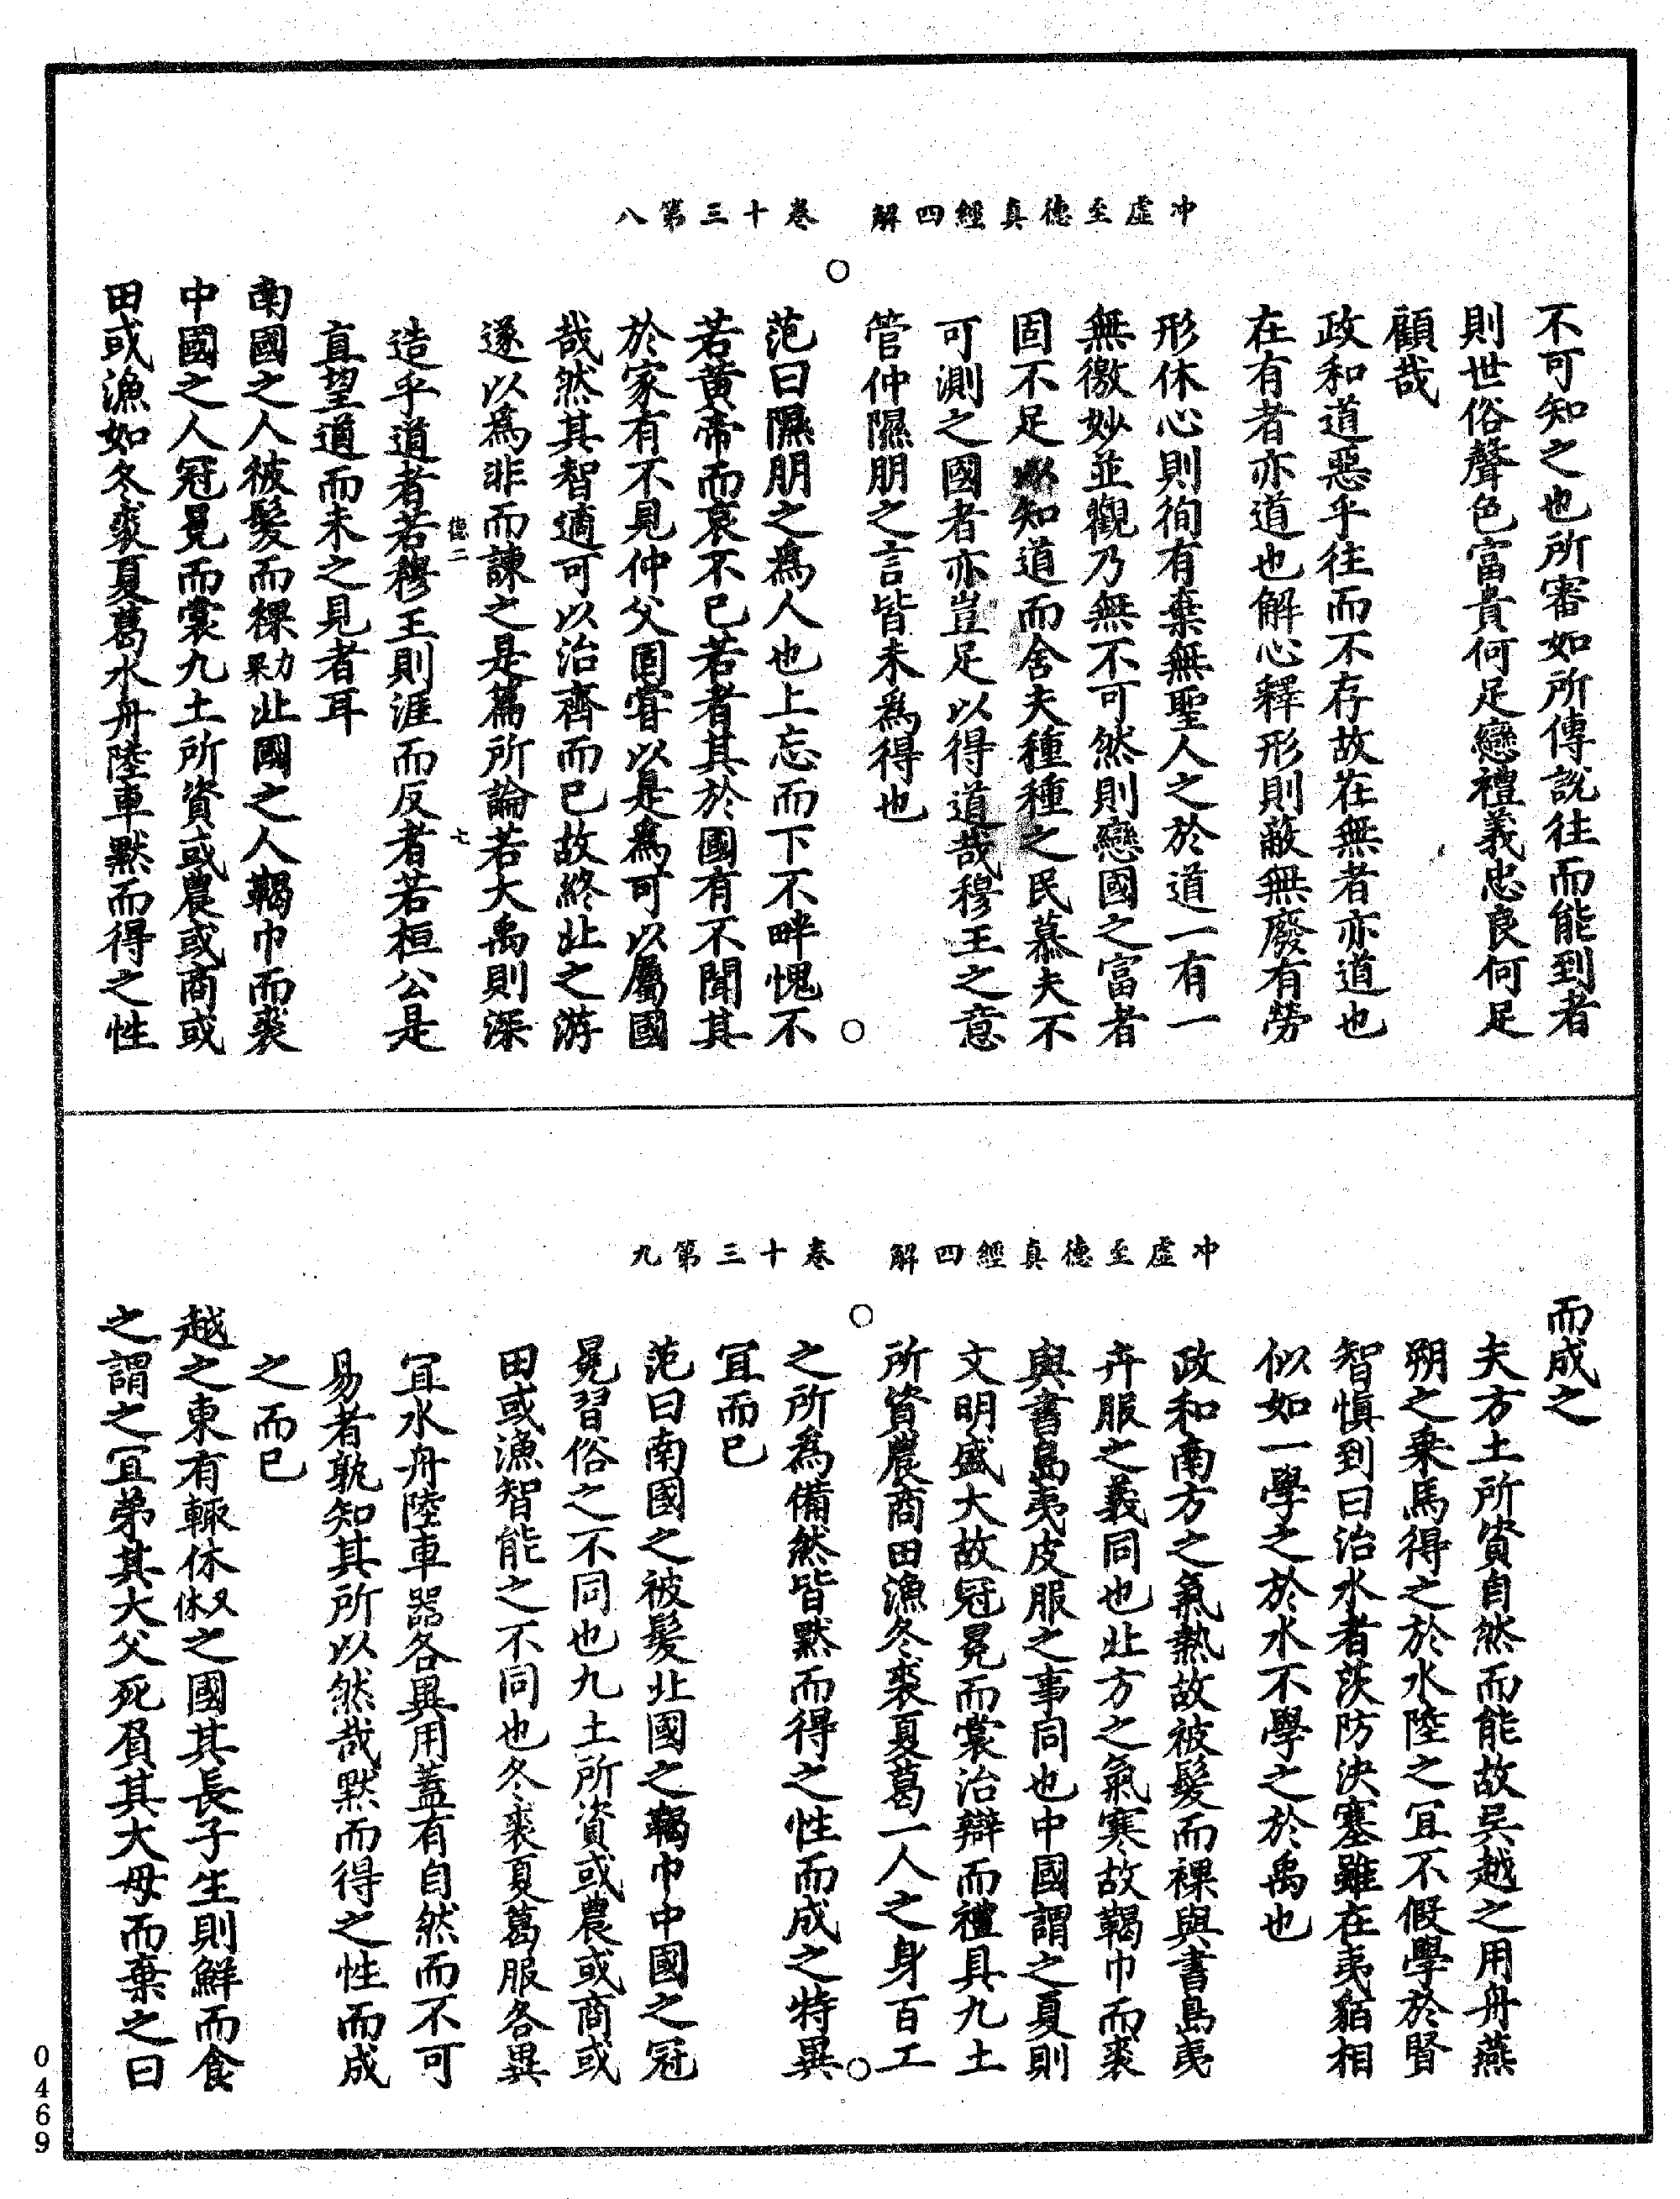 冲虛至德真經四解　卷十三第八
不可知之也所審如所傳說往而能到者
則世俗聲色富貴何足戀禮義忠良何足
顧哉
政和道惡乎往而不存故在無者亦道也
在有者亦道也解心釋形則蔽無廢有勞
形休心則徇有棄無聖人之於道一有一
無徼妙並觀乃無不可然則戀國之富者
固不足以知道而舍夫種種之民慕夫不
可測之國者亦豈足以得道哉穆王之意
管仲隰朋之言皆未爲得也
范曰隰朋之爲人也上忘而下不畔愧不
若黃帝而哀不已若者其於國有不聞其
於家有不見仲父固嘗以是爲可以屬國
哉然其智適可以治齊而已故終北之游
遂以爲非而諫之是篇所論若大禹則深
造乎道者若穆王則涯而反者若桓公是
直望道而未之見者耳
南國之人彼髮而裸力果北國之人鞨巾而裘
中國之人冠冕而裳九土所資或農或商或
田或漁如冬裘夏葛水舟陸車默而得之性
冲虛至德真經四解　卷十三第九
而成之
夫方土所資自然而能故吳越之用舟燕
朔之乘馬得之於水陸之冝不假學於賢
智慎到曰治水者茨防決塞雖在夷貊相
似如一學之於水不學之於禹也
政和南方之氣熱故被髮而裸與書島夷
卉服之義同也北方之氣寒故鞨巾而裘
與書島夷皮服之事同也中國謂之夏則
文明盛大故冠冕而裳治辯而禮具九土
所資農商田漁冬裘夏葛一人之身百工
之所爲備然皆默而得之性而成之特異
冝而已
范曰南國之被髮北國之鞨巾中國之冠
冕習俗之不同也九土所資或農或商或
田或漁智能之不同也冬裘夏葛服各異
冝水舟陸車器各異用蓋有自然而不可
易者孰知其所以然哉默而得之性而成
之而已
越之東有輒休又休之國其長子生則鮮而食
之謂之冝弟其大父死負其大母而棄之曰
0469